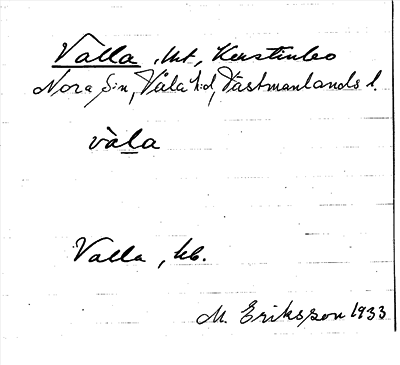 Valla, hmt, Kerstinbo
Nora sn, Våla hd, Västmanlands l.
vàla
Valla, kb.
M. Eriksson 1933